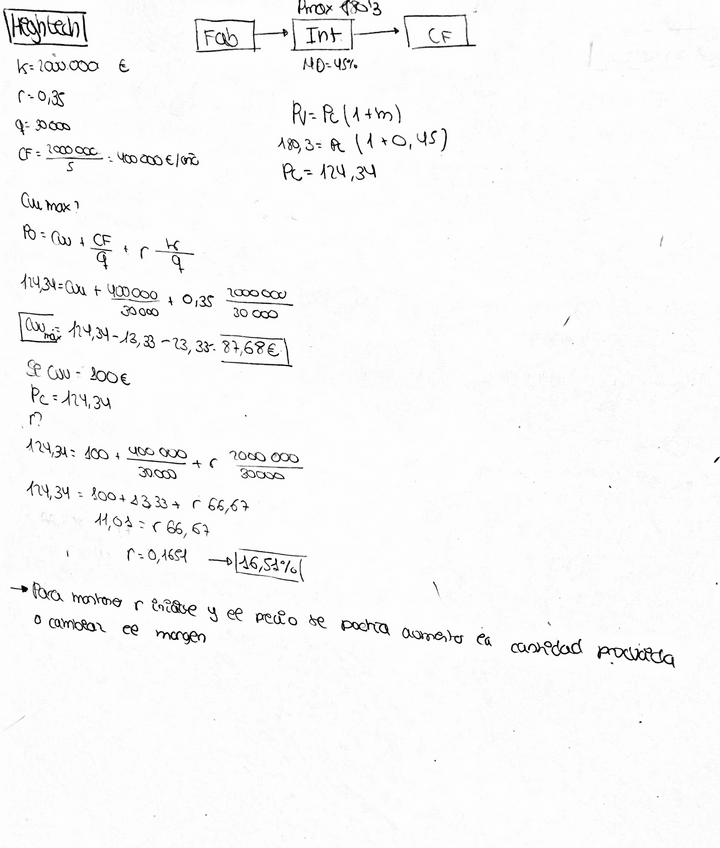 Hightech
Pmax 180'3
Fab → Int → CF
MD=45%
K=2000.000 €
r=0,35
q=30000
CF=2000000/5=400000€/año
Pv=Pc(1+m)
180,3=Pc(1+0,45)
Pc=124,34
Cvu max?
Po=Cvu+CF/q+r K/q
124,34=Cvu+400000/30000+0,35 2000000/30000
Cvu max=124,34-13,33-23,33=87,68€
Si Cvu=100€
Pc=124,34
r?
124,34=100+400000/30000+r 2000000/30000
124,34=100+13,33+r 66,67
11,01=r 66,67
r=0,1651 → 16,51%
→ Para mantener r inicial y el precio se podría aumentar la cantidad producida
o cambiar el margen